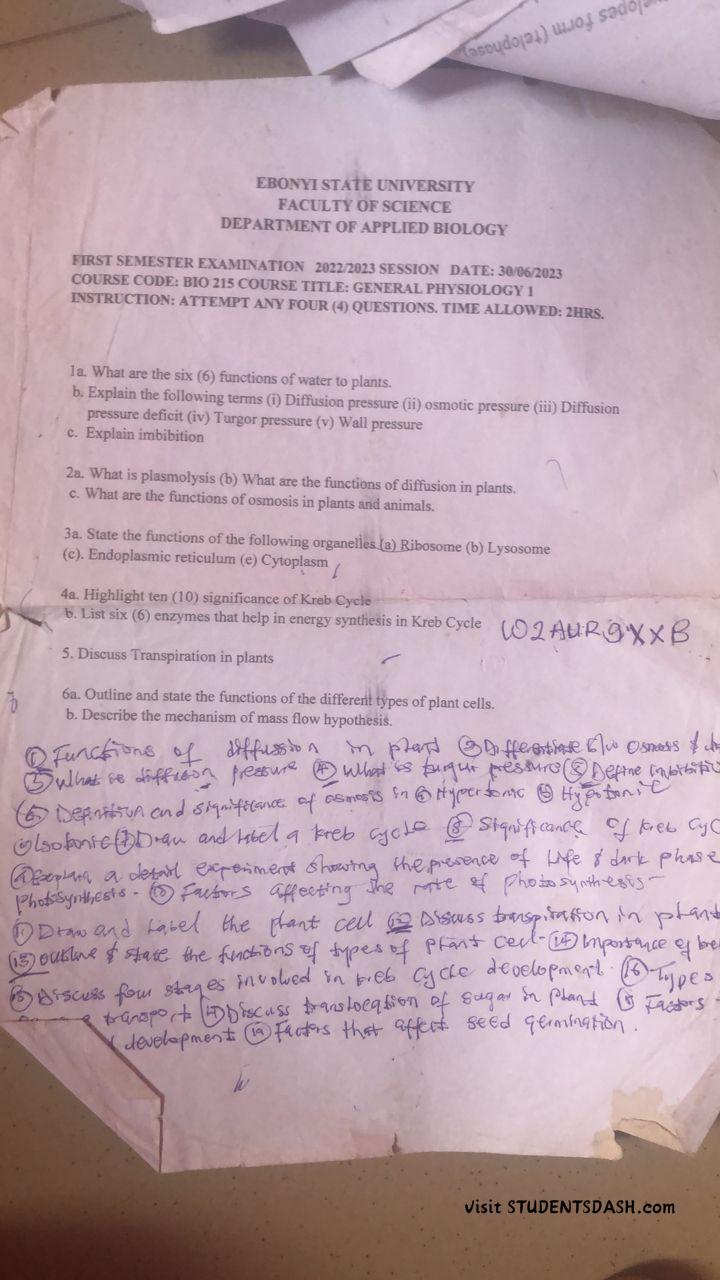 elopes form (telophase)
EBONYI STATE UNIVERSITY
FACULTY OF SCIENCE
DEPARTMENT OF APPLIED BIOLOGY
FIRST SEMESTER EXAMINATION 2022/2023 SESSION DATE: 30/06/2023
COURSE CODE: BIO 215 COURSE TITLE: GENERAL PHYSIOLOGY 1
INSTRUCTION: ATTEMPT ANY FOUR (4) QUESTIONS. TIME ALLOWED: 2HRS.
1a. What are the six (6) functions of water to plants.
b. Explain the following terms (i) Diffusion pressure (ii) osmotic pressure (iii) Diffusion
pressure deficit (iv) Turgor pressure (v) Wall pressure
c. Explain imbibition
2a. What is plasmolysis (b) What are the functions of diffusion in plants.
c. What are the functions of osmosis in plants and animals.
3a. State the functions of the following organelles (a) Ribosome (b) Lysosome
(c). Endoplasmic reticulum (e) Cytoplasm
4a. Highlight ten (10) significance of Kreb Cycle
b. List six (6) enzymes that help in energy synthesis in Kreb Cycle
5. Discuss Transpiration in plants
6a. Outline and state the functions of the different types of plant cells.
b. Describe the mechanism of mass flow hypothesis.
① Functions of diffussion in plant ② Differentiate b/w osmosis &
③ What is diffusion pressure ④ What is turgur pressure ⑤ Define
⑥ Definition and significance of osmosis in ⓐ Hypertonic ⓑ Hypotonic
ⓒ Isotonic ⑦ Draw and Label a kreb cycle ⑧ Significance of kreb cyc
⑨ Explain a detail experiment showing the presence of Life & dark phase
photosynthesis - ⑩ Factors affecting the rate of photosynthesis -
⑪ Draw and Label the plant cell ⑫ Discuss transpiration in plant
⑬ outline & state the functions of types of plant cell - ⑭ Importance of
⑮ Discuss four stages involved in kreb cycle development. ⑯ Types
transport ⑰ Discuss translocation of sugar in plant ⑱ Factors
development ⑲ Factors that affect seed germination.
visit STUDENTSDASH.com